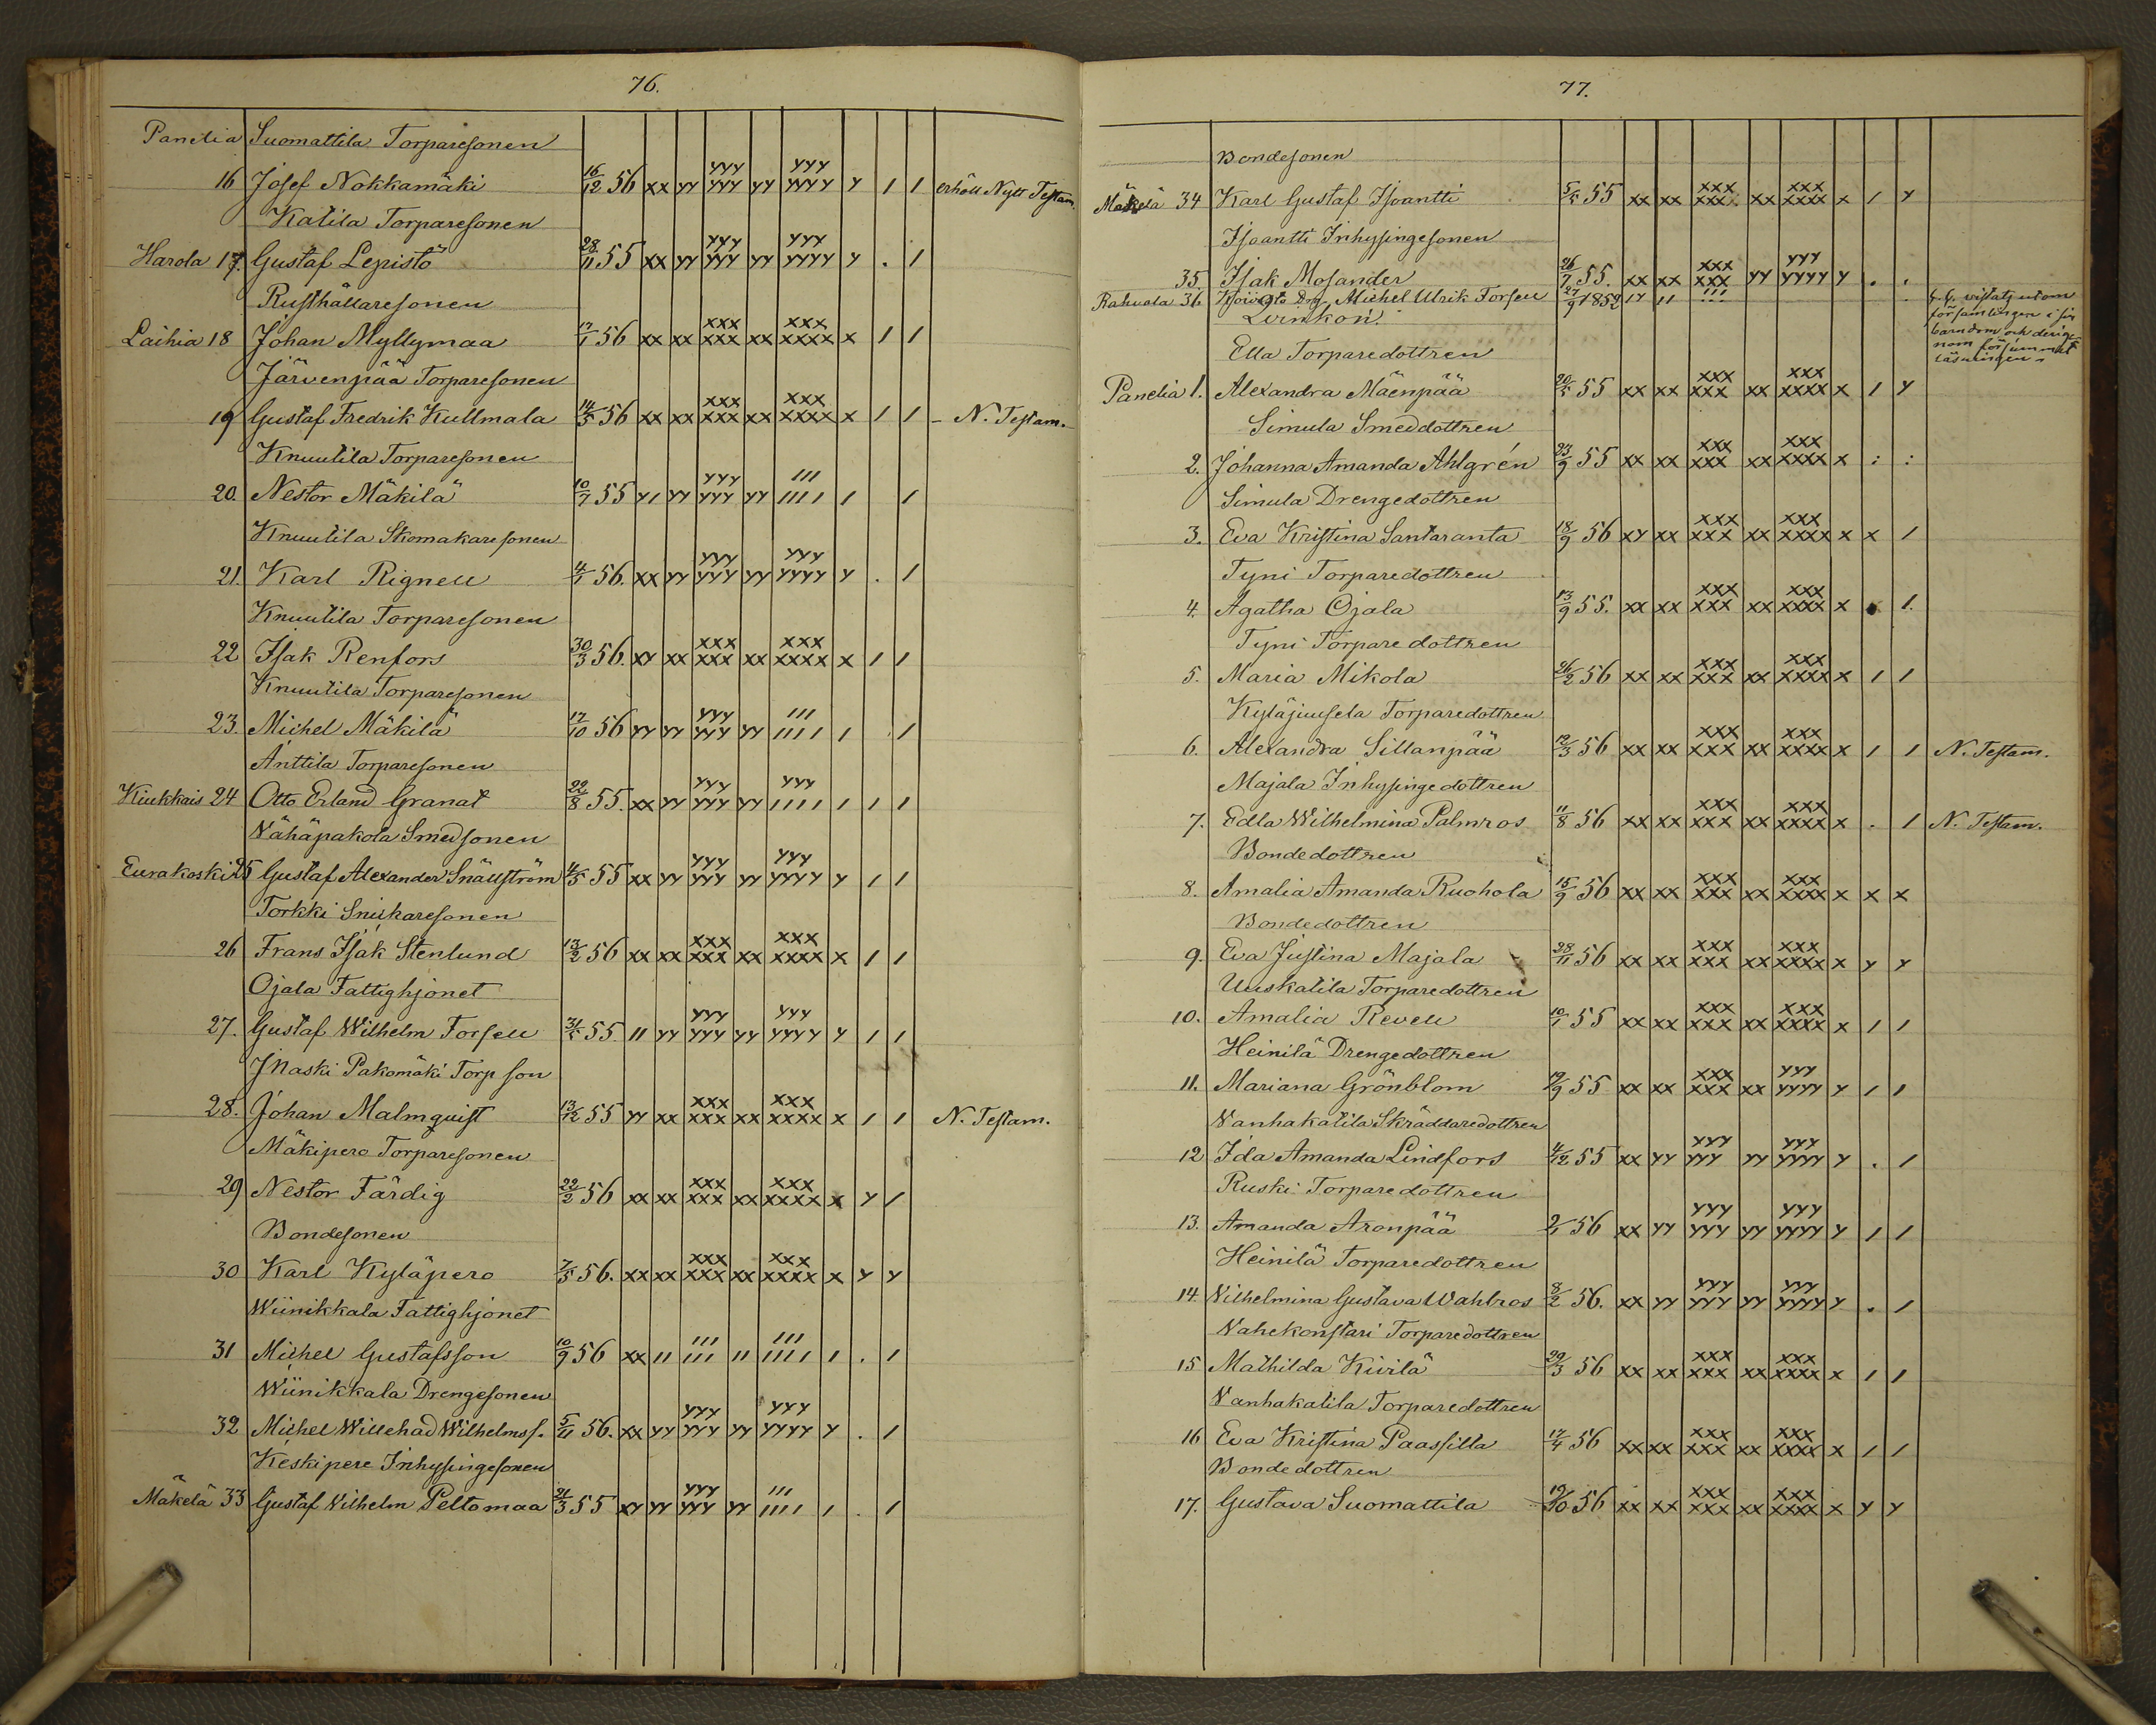 76.
Panelia Suomattila Torparesonen
16 Josef Nokkamäki 16/12 56 xx yy yyy yyy yy yyy yyyy y / / erhöll Nytt Testam.
Katila Torparesonen
Harola 17. Gustaf Lepistö 28/11 55 xx yy yyy yyy yy yyy yyyy y . /
Rusthållaresonen
Laihia 18 Johan Myllymaa 17/1 56 xx xx xxx xxx xx xxx xxxx x / /
Järvenpää Torparesonen
19 Gustaf Fredrik Kullmala 14/5 56 xx xx xxx xxx xx xxx xxxx x / / – N. Testam.
Knuutila Torparesonen
20. Nestor Mäkilä 10/7 55 y/ yy yyy yyy yy /// //// / /
Knuutila Skomakaresonen
21. Karl Rignell 4/1 56. xx yy yyy yyy yy yyy yyyy y . /
Knuutila Torparesonen
22 Isak Renfors 30/3 56. xy xx xxx xxx xx xxx xxxx x / /
Knuutila Torparesonen
23. Michel Mäkilä 17/10 56 yy yy yyy yyy yy /// //// / . /
Anttila Torparesonen
Kiukkais 24 Otto Erland Granat 22/8 55. xx yy yyy yyy yy yyy //// / / /
Vähäpakola Smedsonen
Eurakoski 25 Gustaf Alexander Snällström 4/5 55 xx yy yyy yyy yy yyy yyyy y / /
Torkki Snickaresonen
26 Frans Isak Stenlund 13/2 56 xx xx xxx xxx xx xxx xxxx x / /
Ojala Fattighjonet
27. Gustaf Wilhelm Forsell 31/5 55 // yy yyy yyy yy yyy yyyy y / /
Maski Pakomäki Torp son
28. Johan Malmquist 13/12 55 yy xx xxx xxx xx xxx xxxx x / / N. Testam.
Mäkipero Torparesonen
29 Nestor Färdig 22/2 56 xx xx xxx xxx xx xxx xxxx x y /
Bondesonen
30 Karl Kyläpero 7/5 56. xx xx xxx xxx xx xxx xxxx x y y
Wiinikkala Fattighjonet
31 Michel Gustafsson 10/9 56 xx // /// /// // /// //// / . /
Wiinikkala Drengesonen
32 Michel Willehad Wilhelmss. 5/11 56. xx yy yyy yyy yy yyy yyyy y . /
Keskipere Inhysingesonen
Mäkelä 33 Gustaf Vilhelm Peltomaa 21/3 55 xy yy yyy yyy yy /// //// / . /
77.
Bondesonen
Mäkelä 34 Karl Gustaf Isoantti 5/5 55 xx xx xxx xxx xx xxx xxxx x / y
Isoantti Inhysingesonen
35. Isak Mosander 26/7 55. xx xx xxx xxx yy yyy yyyy y . .
Rahvola 36 Michel Ulrik Forsell 27/9 1852 /y // /// ... vistats utom
församlingen i sin
barndom och derige-
nom försummat
läsningen
Ella Torparedottren
Panelia 1. Alexandra Mäenpää 20/5 55 xx xx xxx xxx xx xxx xxxx x / y
Simula Smeddottren
2. Johanna Amanda Ahlgrén 23/9 55 xx xx xxx xxx xx xxx xxxx x : :
Simula Drengedottren
3. Eva Kristina Santaranta 18/9 56 xy xx xxx xxx xx xxx xxxx x x /
Tyni Torparedottren
4. Agatha Ojala 13/9 55. xx xx xxx xxx xx xxx xxxx x . /.
Tyni Torparedottren
5. Maria Mikola 26/2 56 xx xx xxx xxx xx xxx xxxx x / /
Kyläjuusela Torparedottren
6. Alexandra Sillanpää 12/3 56 xx xx xxx xxx xx xxx xxxx x / / N. Testam.
Majala Inhysingedottren
7. Edla Wilhelmina Palmros 11/8 56 xx xx xxx xxx xx xxx xxxx x . / N. Testam.
Bondedottren
8. Amalia Amanda Ruohola 15/9 56 xx xx xxx xxx xx xxx xxxx x x x
Bondedottren
9. Eva Justina Majala 28/11 56 xx xx xxx xxx xx xxx xxxx x y y
Uuskatila Torparedottren
10. Amalia Revell 10/1 55 xx xx xxx xxx xx xxx xxxx x / /
Heinilä Drengedottren
11. Mariana Grönblom 19/9 55 xx xx xxx xxx xx yyy yyyy y / /
Vanhakatila Skräddaredottren
12 Ida Amanda Lindfors 4/12 55 xx yy yyy yyy yy yyy yyyy y . /
Ruski Torparedottren
13. Amanda Aronpää 2/1 56 xx yy yyy yyy yy yyy yyyy y / /
Heinilä Torparedottren
14 Vilhelmina Gustava Wahlros 8/2 56. xx yy yyy yyy yy yyy yyyy y . /
Vahekonstari Torparedottren
15 Mathilda Kivilä 29/3 56 xx xx xxx xxx xx xxx xxxx x / /
Vanhakatila Torparedottren
16 Eva Kristina Paassilta 17/4 56 xx xx xxx xxx xx xxx xxxx x / /
Bondedottren
17. Gustava Suomattila 19/10 56 xx xx xxx xxx xx xxx xxxx x y y